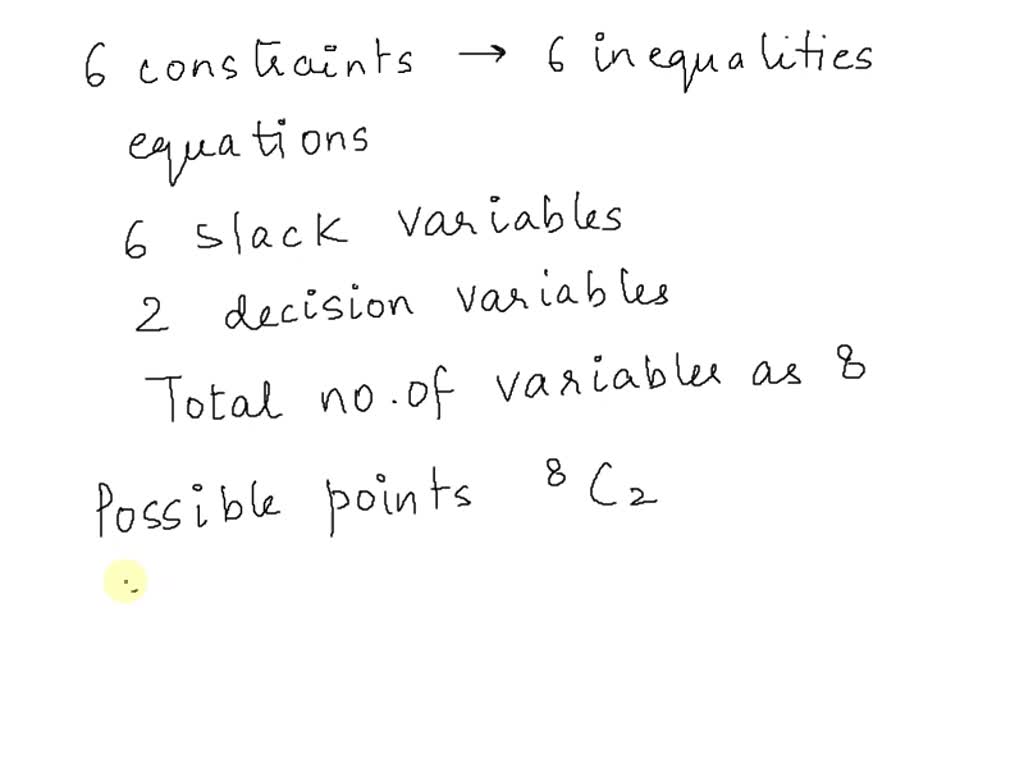 6 constraints → 6 inequalities
equations
6 slack variables
2 decision variables
Total no. of variables as 8
Possible points ⁸C₂